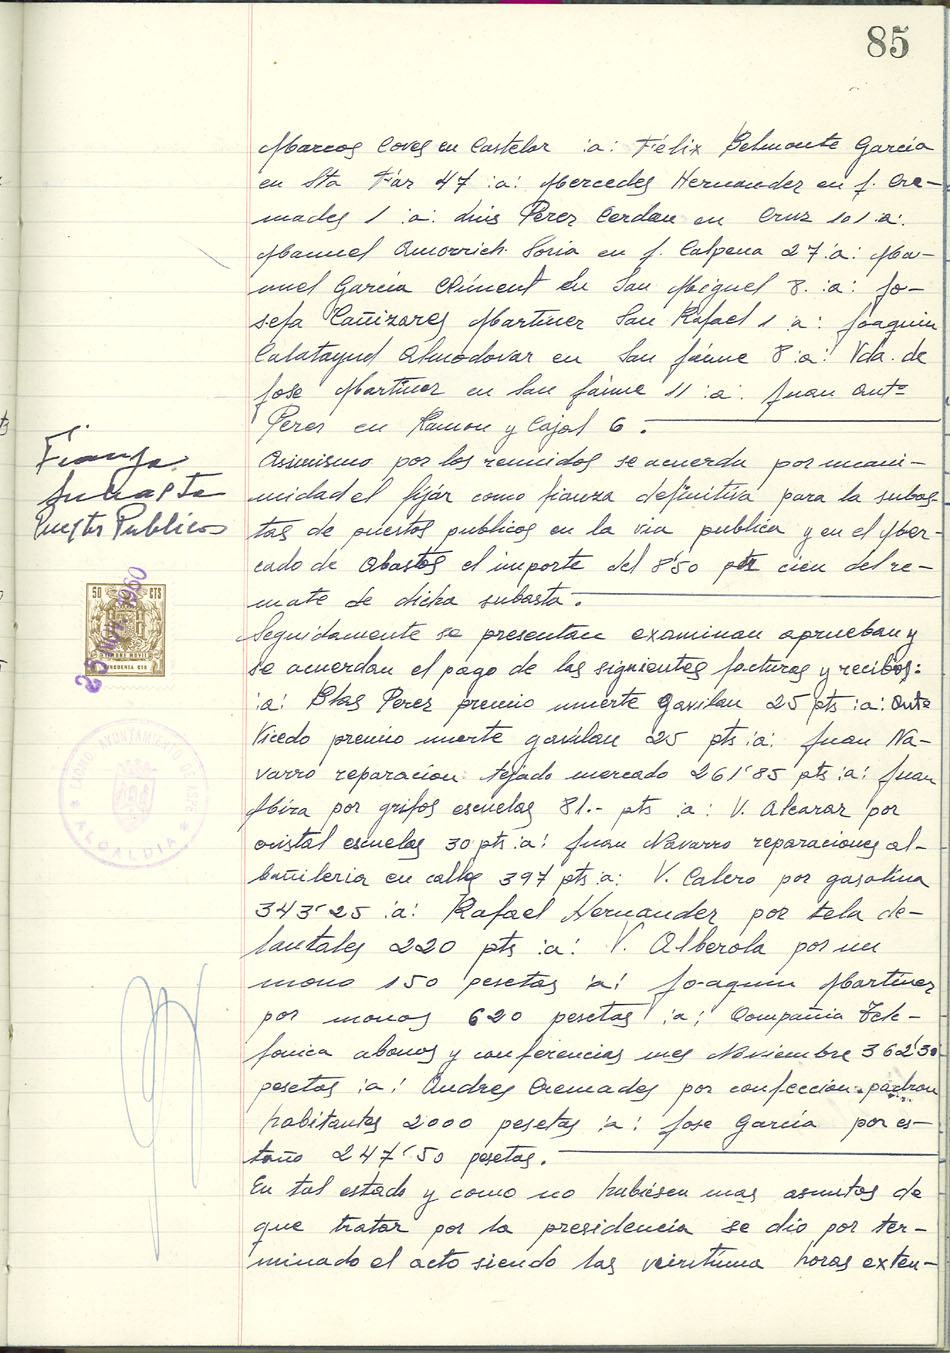 85
Marcos Coves en Castelar :a: Félix Belmonte García
en Sta Faz 47 :a: Mercedes Hernandez en J. Cre-
mades 1 :a: Luis Perez Cerdan en Cruz 101 :a:
Manuel Amorrich Soria en J. Calpena 27 :a: Ma-
nuel García Climent en San Miguel 8. :a: Jo-
sefa Cañizares Martinez San Rafael 1 :a: Joaquin
Calatayud Almodovar en San Jaime 8 :a: Vda. de
Jose Martinez en San Jaime 11 :a: Juan Antº
Perez en Ramon y Cajal 6.
Fianza
Subasta
Puestos Publicos
Asimismo por los reunidos se acuerda por unani-
midad el fijar como fianza definitiva para la subas-
tas de puestos publicos en la via publica y en el Mer-
cado de Abastos el importe del 8'50 por cien del re-
mate de dicha subasta.
50 CTS
25 NOV. 1960
TIMBRE MOVIL
CINCUENTA CTS
Seguidamente se presentan examinan aprueban y
se acuerdan el pago de las siguientes facturas y recibos:
:a: Blas Perez premio muerte gavilan 25 pts :a: Antº
Vicedo premio muerte gavilan 25 pts :a: Juan Na-
varro reparacion tejado mercado 261'85 pts :a: Juan
Mira por grifos escuelas 81.- pts :a: V. Alcaraz por
cristal escuelas 30 pts :a: Juan Navarro reparaciones al-
bañileria en calles 397 pts :a: V. Calero por gasolina
343'25 :a: Rafael Hernandez por tela de-
lantales 220 pts :a: V. Alberola por un
mono 150 pesetas :a: Joaquin Martinez
por monos 620 pesetas :a: Compañia Tele-
fonica abonos y conferencias mes Noviembre 362'30
pesetas :a: Andres Cremades por confeccion padron
habitantes 2000 pesetas :a: Jose García por es-
taño 247'50 pesetas.
EXCMO AYUNTAMIENTO DE ASPE
ALCALDIA
En tal estado y como no hubiesen mas asuntos de
que tratar por la presidencia se dio por ter-
minado el acto siendo las veintiuna horas exten-